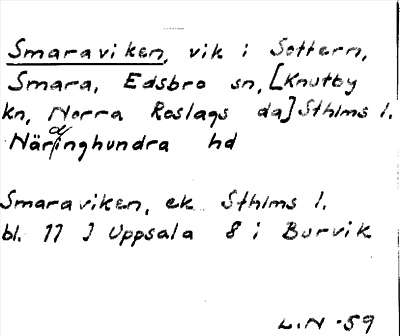 Smaraviken, vik i Sottern,
Smara, Edsbro sn, [Knutby
kn, Norra Roslags da] Sthlms l.
Närdinghundra hd
Smaraviken, ek Sthlms l.
bl. 77 J Uppsala 8 i Burvik
L.N -59